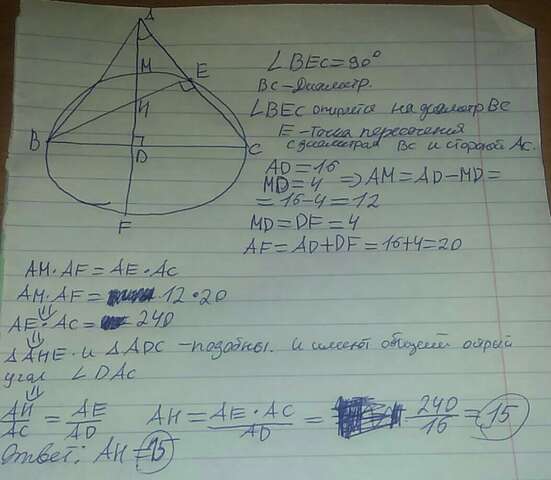 A
M
E
H
B
D
C
F
∠BEC=90°
BC-Диаметр.
∠BEC опирается на диаметр BC
E-Точка пересечения
с диаметрам BC и стороной AC.
AD=16
MD=4 => AM=AD-MD=
=16-4=12
MD=DF=4
AF=AD+DF=16+4=20
AM·AF=AE·AC
AM·AF= 12·20
AE·AC= 240
△AHE·и △ADC -подобны. и имеют общий острый
угол ∠DAC
AH/AC = AE/AD AH= AE·AC/AD = 240/16 =15
Ответ: AH=15